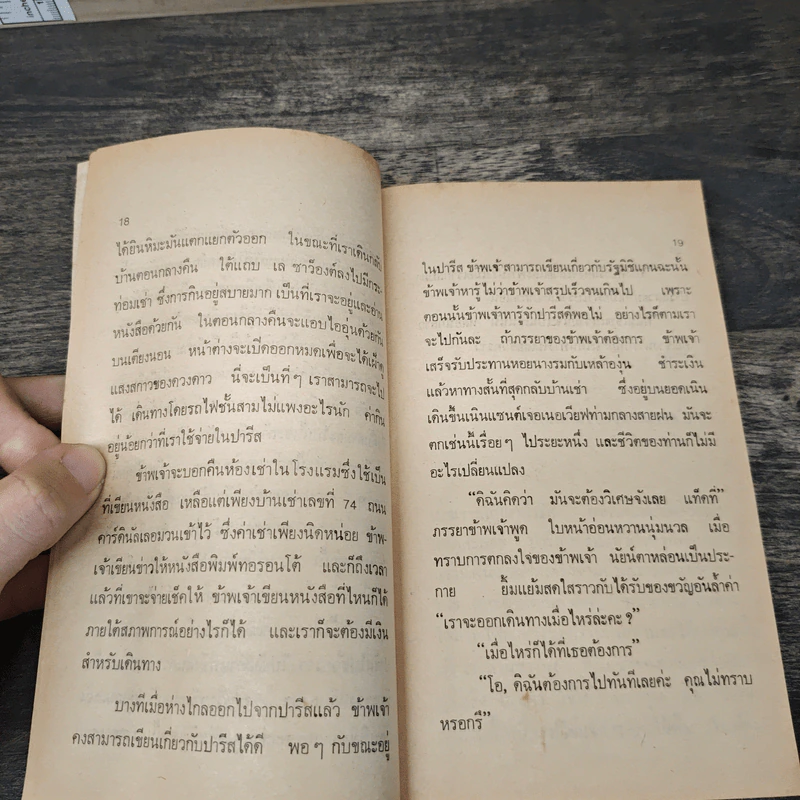 inches
18
ได้ยินหิมะมันแตกแยกตัวออก ในขณะที่เราเดินกลับ
บ้านตอนกลางคืน ใต้แถบ เล ซาว็องต์ลงไปมีกระ-
ท่อมเช่า ซึ่งการกินอยู่สบายมาก เป็นที่เราจะอยู่และอ่าน
หนังสือด้วยกัน ในตอนกลางคืนจะแอบไออุ่นด้วยกัน
บนเตียงนอน หน้าต่างจะเปิดออกหมดเพื่อจะได้เฝ้าดู
แสงสกาวของดวงดาว นี่จะเป็นที่ๆ เราสามารถจะไป
ได้ เดินทางโดยรถไฟชั้นสามไม่แพงอะไรนัก ค่ากิน
อยู่น้อยกว่าที่เราใช้จ่ายในปารีส
ข้าพเจ้าจะบอกคืนห้องเช่าในโรงแรมซึ่งใช้เป็น
ที่เขียนหนังสือ เหลือแต่เพียงบ้านเช่าเลขที่ 74 ถนน
คาร์ดินัลเลอมวนเข้าไว้ ซึ่งค่าเช่าเพียงนิดหน่อย ข้าพ-
เจ้าเขียนข่าวให้หนังสือพิมพ์ทอรอนโต้ และก็ถึงเวลา
แล้วที่เขาจะจ่ายเช็คให้ ข้าพเจ้าเขียนหนังสือที่ไหนก็ได้
ภายใต้สภาพการณ์อย่างไรก็ได้ และเราก็จะต้องมีเงิน
สำหรับเดินทาง
บางทีเมื่อห่างไกลออกไปจากปารีสแล้ว ข้าพเจ้า
คงสามารถเขียนเกี่ยวกับปารีสได้ดี พอๆ กับขณะอยู่
19
ในปารีส ข้าพเจ้าสามารถเขียนเกี่ยวกับรัฐมิชิแกนฉะนั้น
ข้าพเจ้าหารู้ไม่ว่าข้าพเจ้าสรุปเร็วจนเกินไป เพราะ
ตอนนั้นข้าพเจ้าหารู้จักปารีสดีพอไม่ อย่างไรก็ตามเรา
จะไปกันละ ถ้าภรรยาของข้าพเจ้าต้องการ ข้าพเจ้า
เสร็จรับประทานหอยนางรมกับเหล้าองุ่น ชำระเงิน
แล้วหาทางสั้นที่สุดกลับบ้านเช่า ซึ่งอยู่บนยอดเนิน
เดินขึ้นเนินแซนต์เจอเนอเวียฟท่ามกลางสายฝน มันจะ
ตกเช่นนี้เรื่อยๆ ไประยะหนึ่ง และชีวิตของท่านก็ไม่มี
อะไรเปลี่ยนแปลง
“ดิฉันคิดว่า มันจะต้องวิเศษจังเลย แท็ตที่”
ภรรยาข้าพเจ้าพูด ใบหน้าอ่อนหวานนุ่มนวล เมื่อ
ทราบการตกลงใจของข้าพเจ้า นัยน์ตาหล่อนเป็นประ-
กาย ยิ้มแย้มสดใสราวกับได้รับของขวัญอันล้ำค่า
“เราจะออกเดินทางเมื่อไหร่ล่ะคะ ?”
“เมื่อไหร่ก็ได้ที่เธอต้องการ”
“โอ, ดิฉันต้องการไปทันทีเลยค่ะ คุณไม่ทราบ
หรอกรึ”